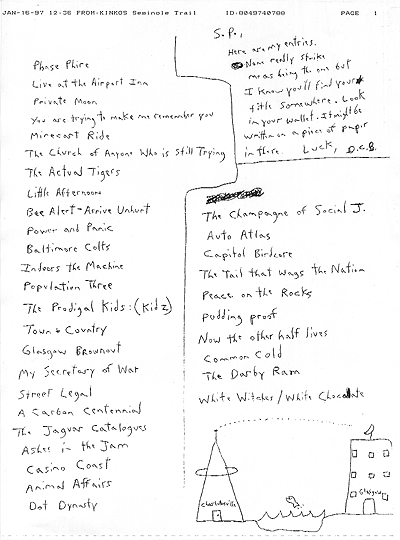 JAN-16-97 12:36 FROM-KINKOS Seminole Trail ID-8049740788 PAGE 1
S.P.,
Here are my entries.
None really strike
me as being the one but
I know you'll find your
title somewhere. Look
in your wallet. It might be
written on a piece of paper
in there. Luck, D.C.B.
Phase Phire
Live at the Airport Inn
Private Moon
You are trying to make me remember you
Minecart Ride
The Church of Anyone Who is Still Trying
The Actual Tigers
Little Afternoons
Bee Alert - Arrive Unhurt
Power and Panic
Baltimore Colts
Indoors the Machine
Population Three
The Prodigal Kids: (Kidz)
Town & Country
Glasgow Brownout
My Secretary of War
Street Legal
A Carbon Centennial
The Jaguar Catalogues
Ashes in the Jam
Casino Coast
Animal Affairs
Dot Dynasty
The Champagne of Social J.
Auto Atlas
Capitol Birdcore
The Tail that Wags the Nation
Peace on the Rocks
Pudding proof
Now the other half lives
Common Cold
The Darby Ram
White Witches / White Chocolate
Charlottesville
Glasgow